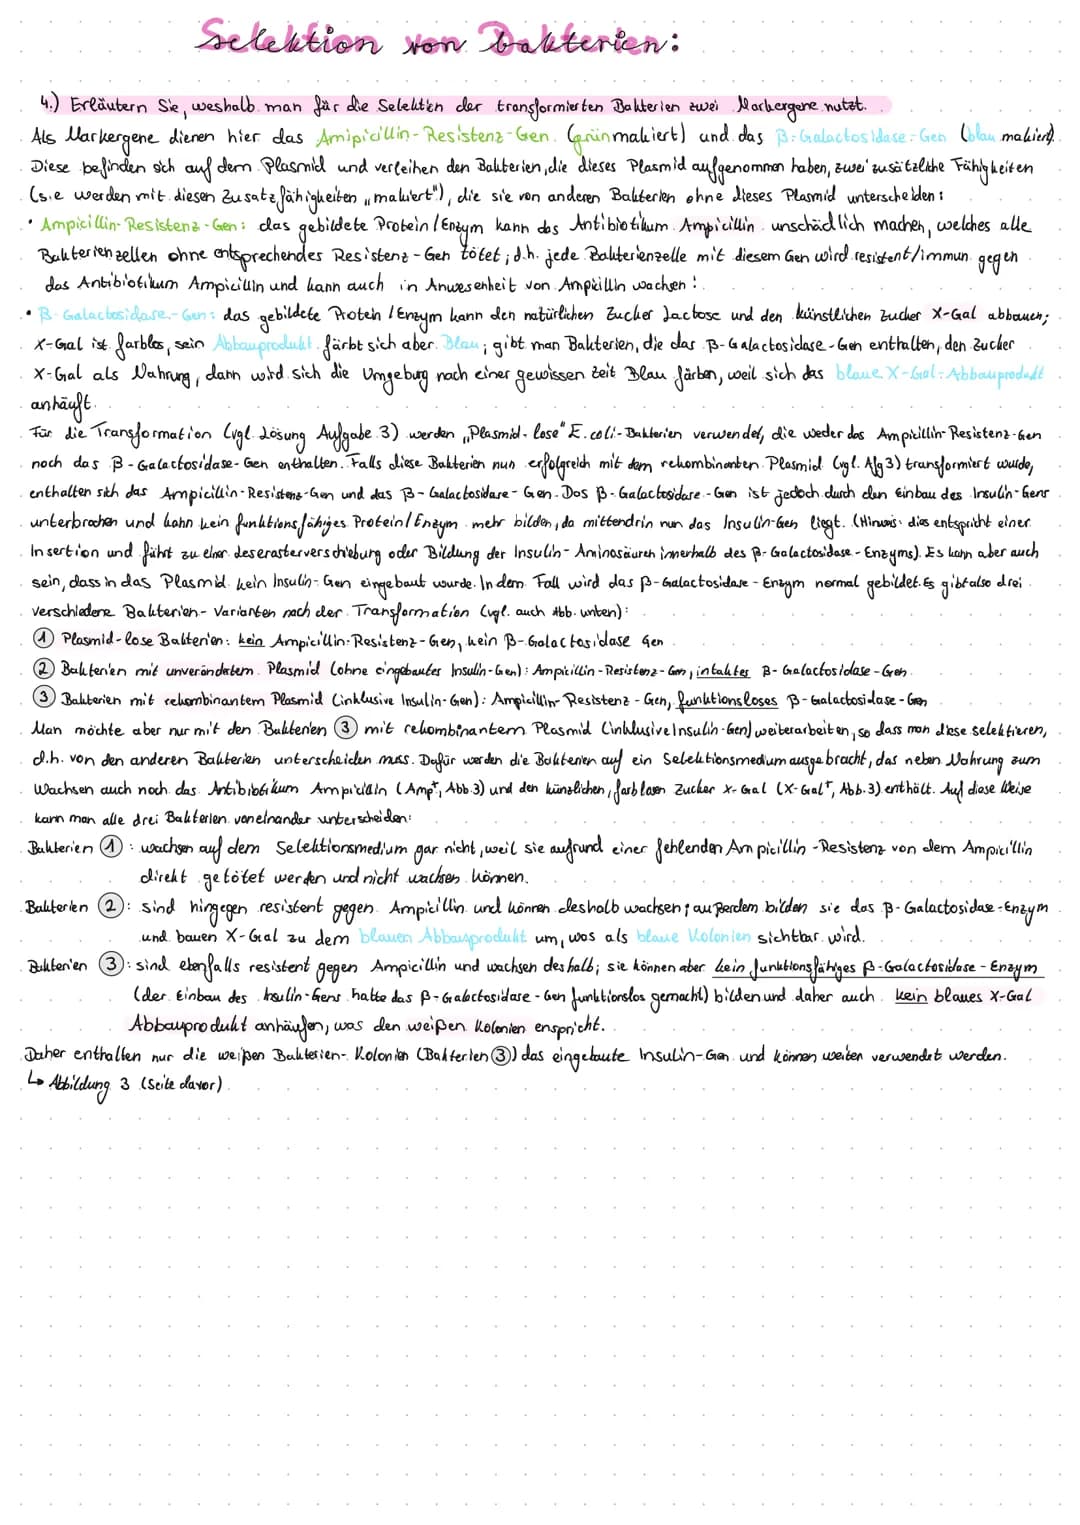 Selektion von Bakterien:
4.) Erläutern Sie, weshalb man für die Selektion der transformierten Bakterien zwei Markergene nutzt.
Als Markergene dienen hier das Amipicillin-Resistenz-Gen (grün makiert) und das β-Galactosidase-Gen (blau makiert).
Diese befinden sich auf dem Plasmid und verleihen den Bakterien, die dieses Plasmid aufgenommen haben, zwei zusätzliche Fähigkeiten
(sie werden mit diesen Zusatzfähigkeiten „makiert"), die sie von anderen Bakterien ohne dieses Plasmid unterscheiden:
• Ampicillin-Resistenz-Gen: das gebildete Protein/Enzym kann das Antibiotikum Ampicillin unschädlich machen, welches alle
Bakterienzellen ohne entsprechendes Resistenz-Gen tötet; d.h. jede Bakterienzelle mit diesem Gen wird resistent/immun gegen
das Antibiotikum Ampicillin und kann auch in Anwesenheit von Ampicillin wachsen!
• β-Galactosidase-Gen: das gebildete Protein/Enzym kann den natürlichen Zucker Lactose und den künstlichen Zucker X-Gal abbauen;
X-Gal ist farblos, sein Abbauprodukt färbt sich aber Blau; gibt man Bakterien, die das β-Galactosidase-Gen enthalten, den Zucker
X-Gal als Nahrung, dann wird sich die Umgebung nach einer gewissen Zeit Blau färben, weil sich das blaue X-Gal-Abbauprodukt
anhäuft.
Für die Transformation (vgl. Lösung Aufgabe 3) werden „Plasmid-lose" E.coli-Bakterien verwendet, die weder das Ampicillin-Resistenz-Gen
noch das β-Galactosidase-Gen enthalten. Falls diese Bakterien nun erfolgreich mit dem rekombinanten Plasmid (vgl. Afg 3) transformiert wurde,
enthalten sich das Ampicillin-Resistenz-Gen und das β-Galactosidase-Gen. Das β-Galactosidase-Gen ist jedoch durch den Einbau des Insulin-Gens
unterbrochen und kann kein funktionsfähiges Protein/Enzym mehr bilden, da mittendrin nun das Insulin-Gen liegt. (Hinweis: dies entspricht einer
Insertion und führt zu einer deserasterverschieburg oder Bildung der Insulin-Aminosäuren innerhalb des β-Galactosidase-Enzyms). Es kann aber auch
sein, dass in das Plasmid kein Insulin-Gen eingebaut wurde. In dem Fall wird das β-Galactosidase-Enzym normal gebildet. Es gibt also drei
verschiedene Bakterien-Varianten nach der Transformation (vgl. auch Abb. unten):
① Plasmid-lose Bakterien: kein Ampicillin-Resistenz-Gen, kein β-Galactosidase Gen
② Bakterien mit unverändertem Plasmid (ohne eingebautes Insulin-Gen): Ampicillin-Resistenz-Gen, intaktes β-Galactosidase-Gen
③ Bakterien mit rekombinantem Plasmid (inklusive Insulin-Gen): Ampicillin-Resistenz-Gen, funktionsloses β-Galactosidase-Gen
Man möchte aber nur mit den Bakterien ③ mit rekombinantem Plasmid (inklusive Insulin-Gen) weiterarbeiten, so dass man diese selektieren,
d.h. von den anderen Bakterien unterscheiden muss. Dafür werden die Bakterien auf ein Selektionsmedium ausgebracht, das neben Nahrung zum
Wachsen auch noch das Antibiotikum Ampicillin (Amp⁺, Abb.3) und den künzlichen, farblosen Zucker X-Gal (X-Gal⁺, Abb.3) enthält. Auf diese Weise
kann man alle drei Bakterien voneinander unterscheiden:
Bakterien ①: wachsen auf dem Selektionsmedium gar nicht, weil sie aufrund einer fehlenden Ampicillin-Resistenz von dem Ampicillin
direkt getötet werden und nicht wachsen können.
Bakterien ②: sind hingegen resistent gegen Ampicillin und können deshalb wachsen; außerdem bilden sie das β-Galactosidase-Enzym
und bauen X-Gal zu dem blauen Abbauprodukt um, was als blaue Kolonien sichtbar wird.
Bakterien ③: sind ebenfalls resistent gegen Ampicillin und wachsen deshalb; sie können aber kein funktionsfähiges β-Galactosidase-Enzym
(der Einbau des Insulin-Gens hatte das β-Galactosidase-Gen funktionslos gemacht) bilden und daher auch kein blaues X-Gal
Abbauprodukt anhäufen, was den weißen Kolonien enspricht.
Daher enthalten nur die weißen Bakterien-Kolonien (Bakterien ③) das eingebaute Insulin-Gen und können weiter verwendet werden.
↳ Abbildung 3 (Seite davor)